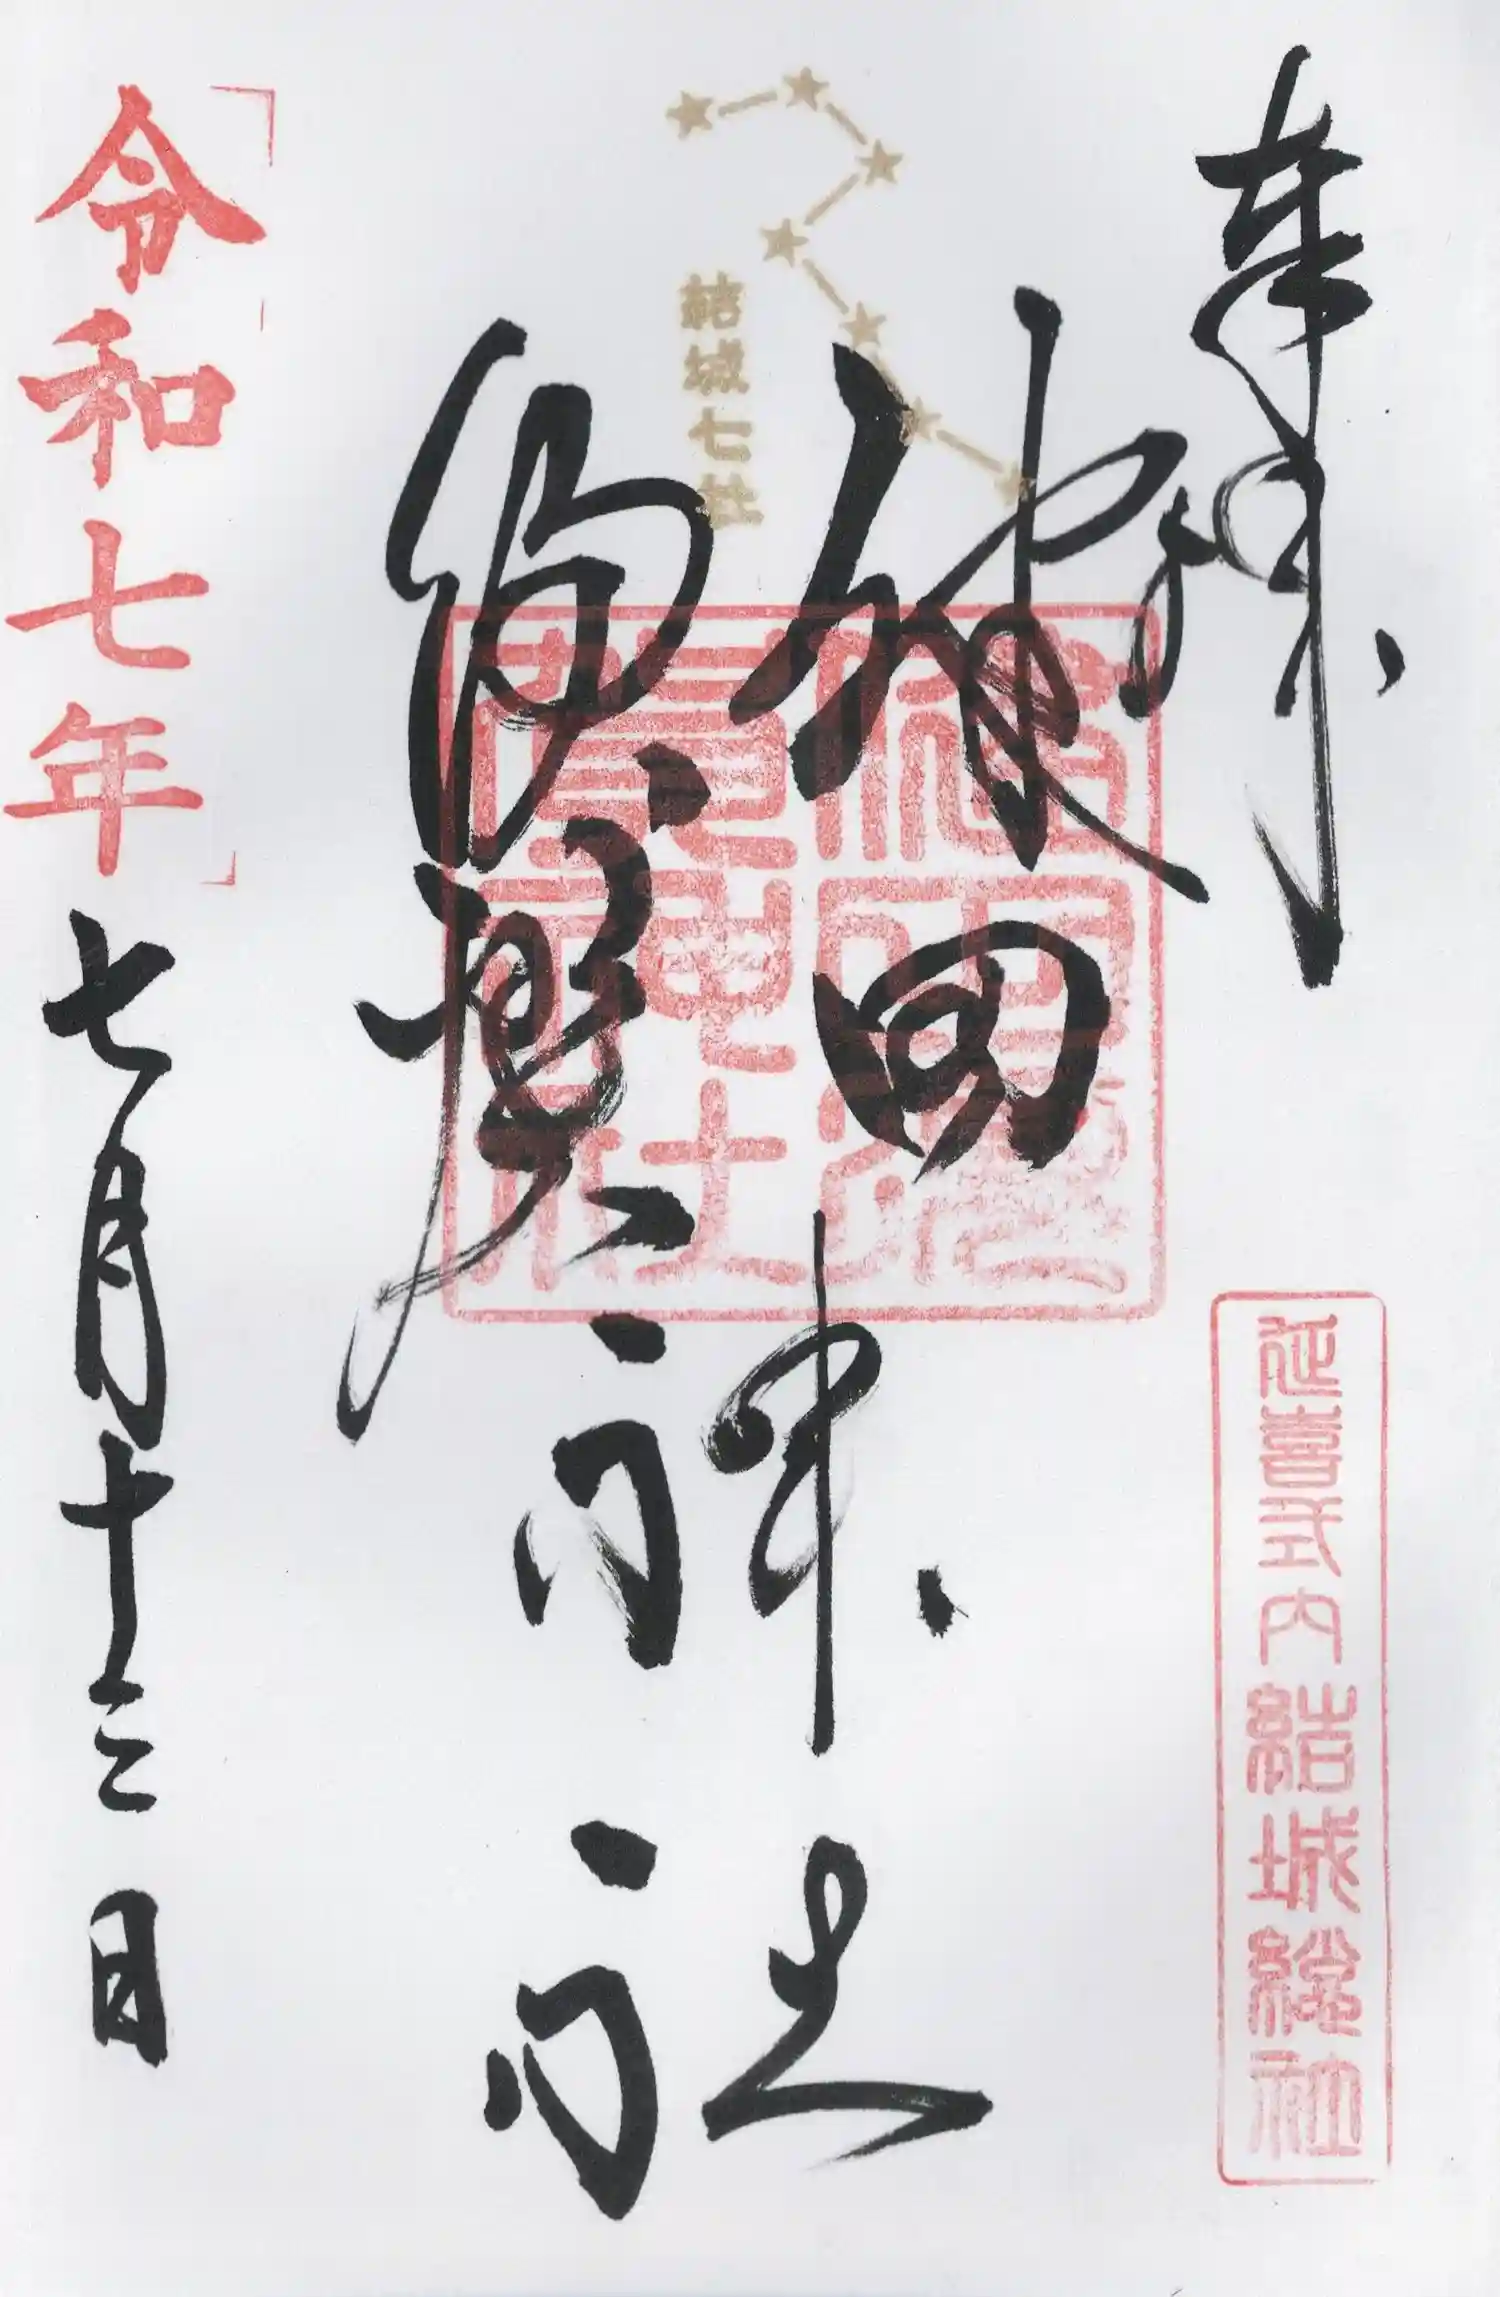 奉拝
延喜式内結城總社
結城七社
健田
須賀
神社
健田須
賀神社
令和七年七月十三日